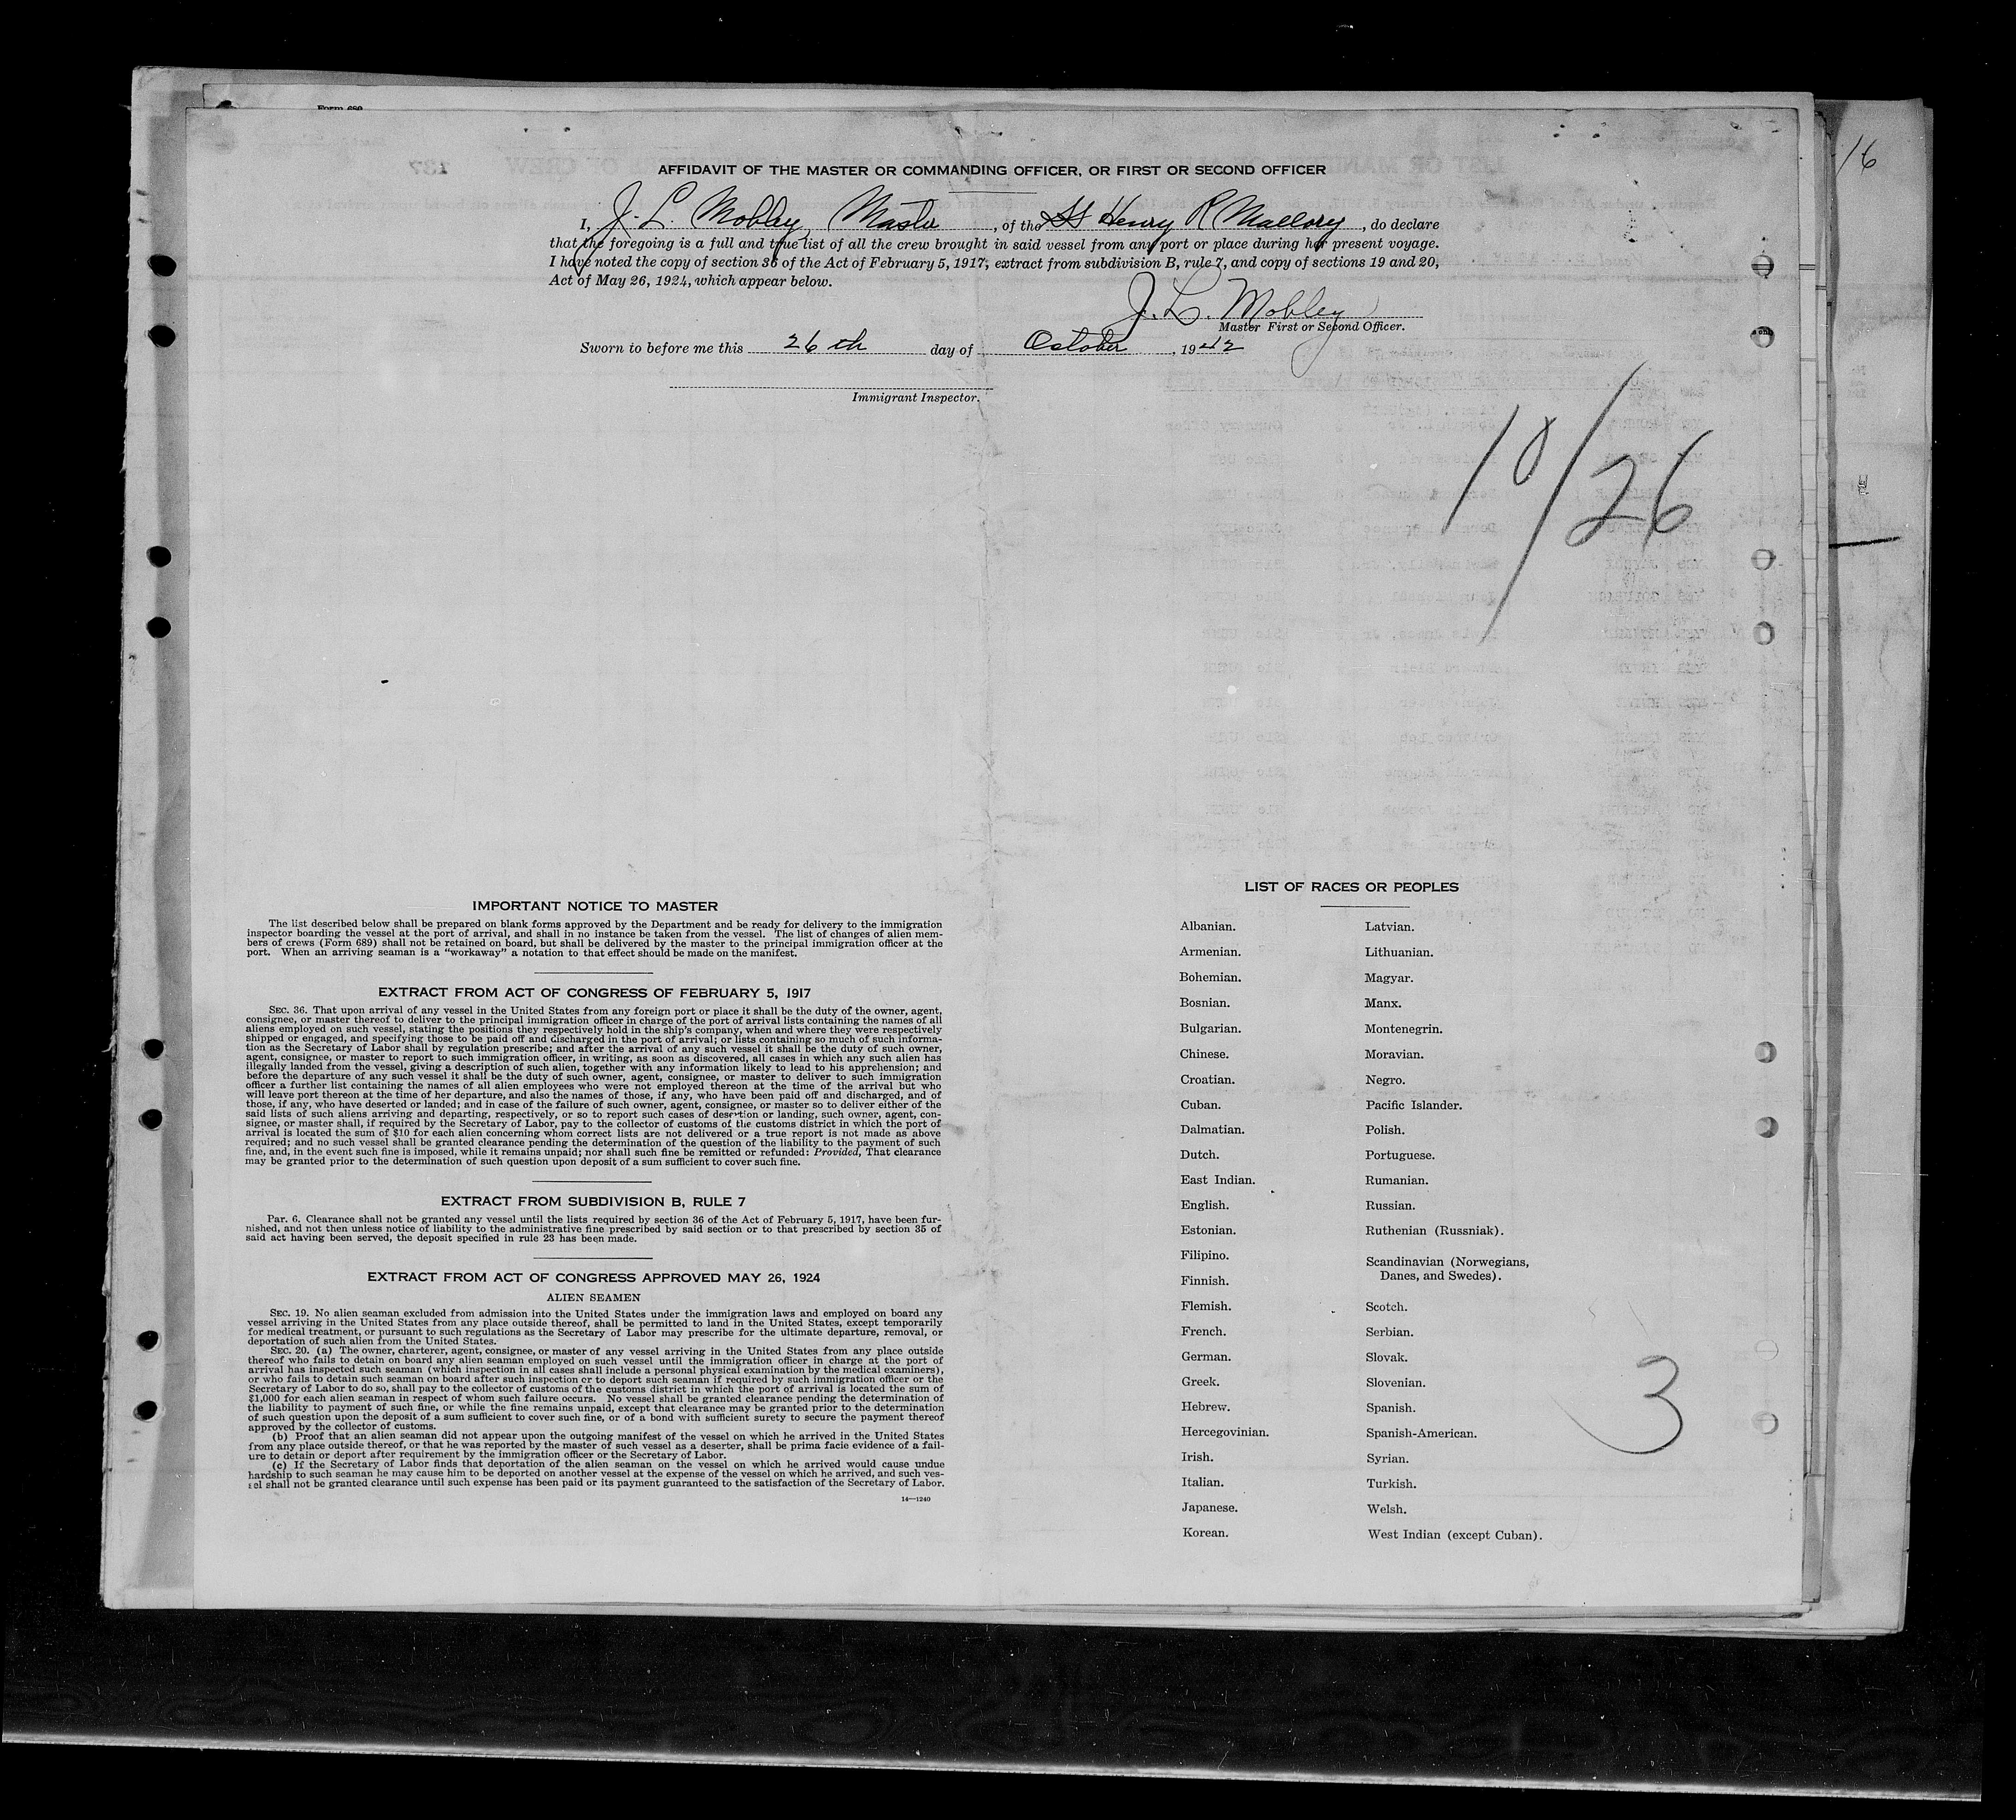 16
AFFIDAVIT OF THE MASTER OR COMMANDING OFFICER, OR FIRST OR SECOND OFFICER
I, J. L. Mobley, Master, of the SS Henry R Mallory, do declare
that the foregoing is a full and true list of all the crew brought in said vessel from any port or place during her present voyage.
I have noted the copy of section 36 of the Act of February 5, 1917, extract from subdivision B, rule 7, and copy of sections 19 and 20,
Act of May 26, 1924, which appear below.
J. L. Mobley
Master First or Second Officer.
Sworn to before me this 26th day of October, 1942
Immigrant Inspector.
10/26
IMPORTANT NOTICE TO MASTER
The list described below shall be prepared on blank forms approved by the Department and be ready for delivery to the immigration
inspector boarding the vessel at the port of arrival, and shall in no instance be taken from the vessel. The list of changes of alien mem-
bers of crews (Form 689) shall not be retained on board, but shall be delivered by the master to the principal immigration officer at the
port. When an arriving seaman is a "workaway" a notation to that effect should be made on the manifest.
EXTRACT FROM ACT OF CONGRESS OF FEBRUARY 5, 1917
SEC. 36. That upon arrival of any vessel in the United States from any foreign port or place it shall be the duty of the owner, agent,
consignee, or master thereof to deliver to the principal immigration officer in charge of the port of arrival lists containing the names of all
aliens employed on such vessel, stating the positions they respectively hold in the ship's company, when and where they were respectively
shipped or engaged, and specifying those to be paid off and discharged in the port of arrival; or lists containing so much of such informa-
tion as the Secretary of Labor shall by regulation prescribe; and after the arrival of any such vessel it shall be the duty of such owner,
agent, consignee, or master to report to such immigration officer, in writing, as soon as discovered, all cases in which any such alien has
illegally landed from the vessel, giving a description of such alien, together with any information likely to lead to his apprehension; and
before the departure of any such vessel it shall be the duty of such owner, agent, consignee, or master to deliver to such immigration
officer a further list containing the names of all alien employees who were not employed thereon at the time of the arrival but who
will leave port thereon at the time of her departure, and also the names of those, if any, who have been paid off and discharged, and of
those, if any, who have deserted or landed; and in case of the failure of such owner, agent, consignee, or master so to deliver either of the
said lists of such aliens arriving and departing, respectively, or so to report such cases of desertion or landing, such owner, agent, con-
signee, or master shall, if required by the Secretary of Labor, pay to the collector of customs of the customs district in which the port of
arrival is located the sum of $10 for each alien concerning whom correct lists are not delivered or a true report is not made as above
required; and no such vessel shall be granted clearance pending the determination of the question of the liability to the payment of such
fine, and, in the event such fine is imposed, while it remains unpaid; nor shall such fine be remitted or refunded: Provided, That clearance
may be granted prior to the determination of such question upon deposit of a sum sufficient to cover such fine.
EXTRACT FROM SUBDIVISION B, RULE 7
Par. 6. Clearance shall not be granted any vessel until the lists required by section 36 of the Act of February 5, 1917, have been fur-
nished, and not then unless notice of liability to the administrative fine prescribed by said section or to that prescribed by section 35 of
said act having been served, the deposit specified in rule 23 has been made.
EXTRACT FROM ACT OF CONGRESS APPROVED MAY 26, 1924
ALIEN SEAMEN
SEC. 19. No alien seaman excluded from admission into the United States under the immigration laws and employed on board any
vessel arriving in the United States from any place outside thereof, shall be permitted to land in the United States, except temporarily
for medical treatment, or pursuant to such regulations as the Secretary of Labor may prescribe for the ultimate departure, removal, or
deportation of such alien from the United States.
SEC. 20. (a) The owner, charterer, agent, consignee, or master of any vessel arriving in the United States from any place outside
thereof who fails to detain on board any alien seaman employed on such vessel until the immigration officer in charge at the port of
arrival has inspected such seaman (which inspection in all cases shall include a personal physical examination by the medical examiners),
or who fails to detain such seaman on board after such inspection or to deport such seaman if required by such immigration officer or the
Secretary of Labor to do so, shall pay to the collector of customs of the customs district in which the port of arrival is located the sum of
$1,000 for each alien seaman in respect of whom such failure occurs. No vessel shall be granted clearance pending the determination of
the liability to payment of such fine, or while the fine remains unpaid, except that clearance may be granted prior to the determination
of such question upon the deposit of a sum sufficient to cover such fine, or of a bond with sufficient surety to secure the payment thereof
approved by the collector of customs.
(b) Proof that an alien seaman did not appear upon the outgoing manifest of the vessel on which he arrived in the United States
from any place outside thereof, or that he was reported by the master of such vessel as a deserter, shall be prima facie evidence of a fail-
ure to detain or deport after requirement by the immigration officer or the Secretary of Labor.
(c) If the Secretary of Labor finds that deportation of the alien seaman on the vessel on which he arrived would cause undue
hardship to such seaman he may cause him to be deported on another vessel at the expense of the vessel on which he arrived, and such ves-
sel shall not be granted clearance until such expense has been paid or its payment guaranteed to the satisfaction of the Secretary of Labor.
14—1240
LIST OF RACES OR PEOPLES
Albanian.
Armenian.
Bohemian.
Bosnian.
Bulgarian.
Chinese.
Croatian.
Cuban.
Dalmatian.
Dutch.
East Indian.
English.
Estonian.
Filipino.
Finnish.
Flemish.
French.
German.
Greek.
Hebrew.
Hercegovinian.
Irish.
Italian.
Japanese.
Korean.
Latvian.
Lithuanian.
Magyar.
Manx.
Montenegrin.
Moravian.
Negro.
Pacific Islander.
Polish.
Portuguese.
Rumanian.
Russian.
Ruthenian (Russniak).
Scandinavian (Norwegians,
Danes, and Swedes).
Scotch.
Serbian.
Slovak.
Slovenian.
Spanish.
Spanish-American.
Syrian.
Turkish.
Welsh.
West Indian (except Cuban).
3